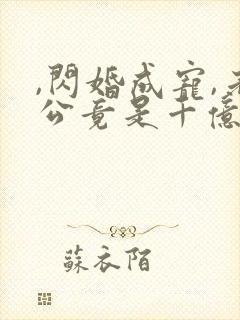 ,閃婚成寵,老
公竟是十億
蘇衣陌